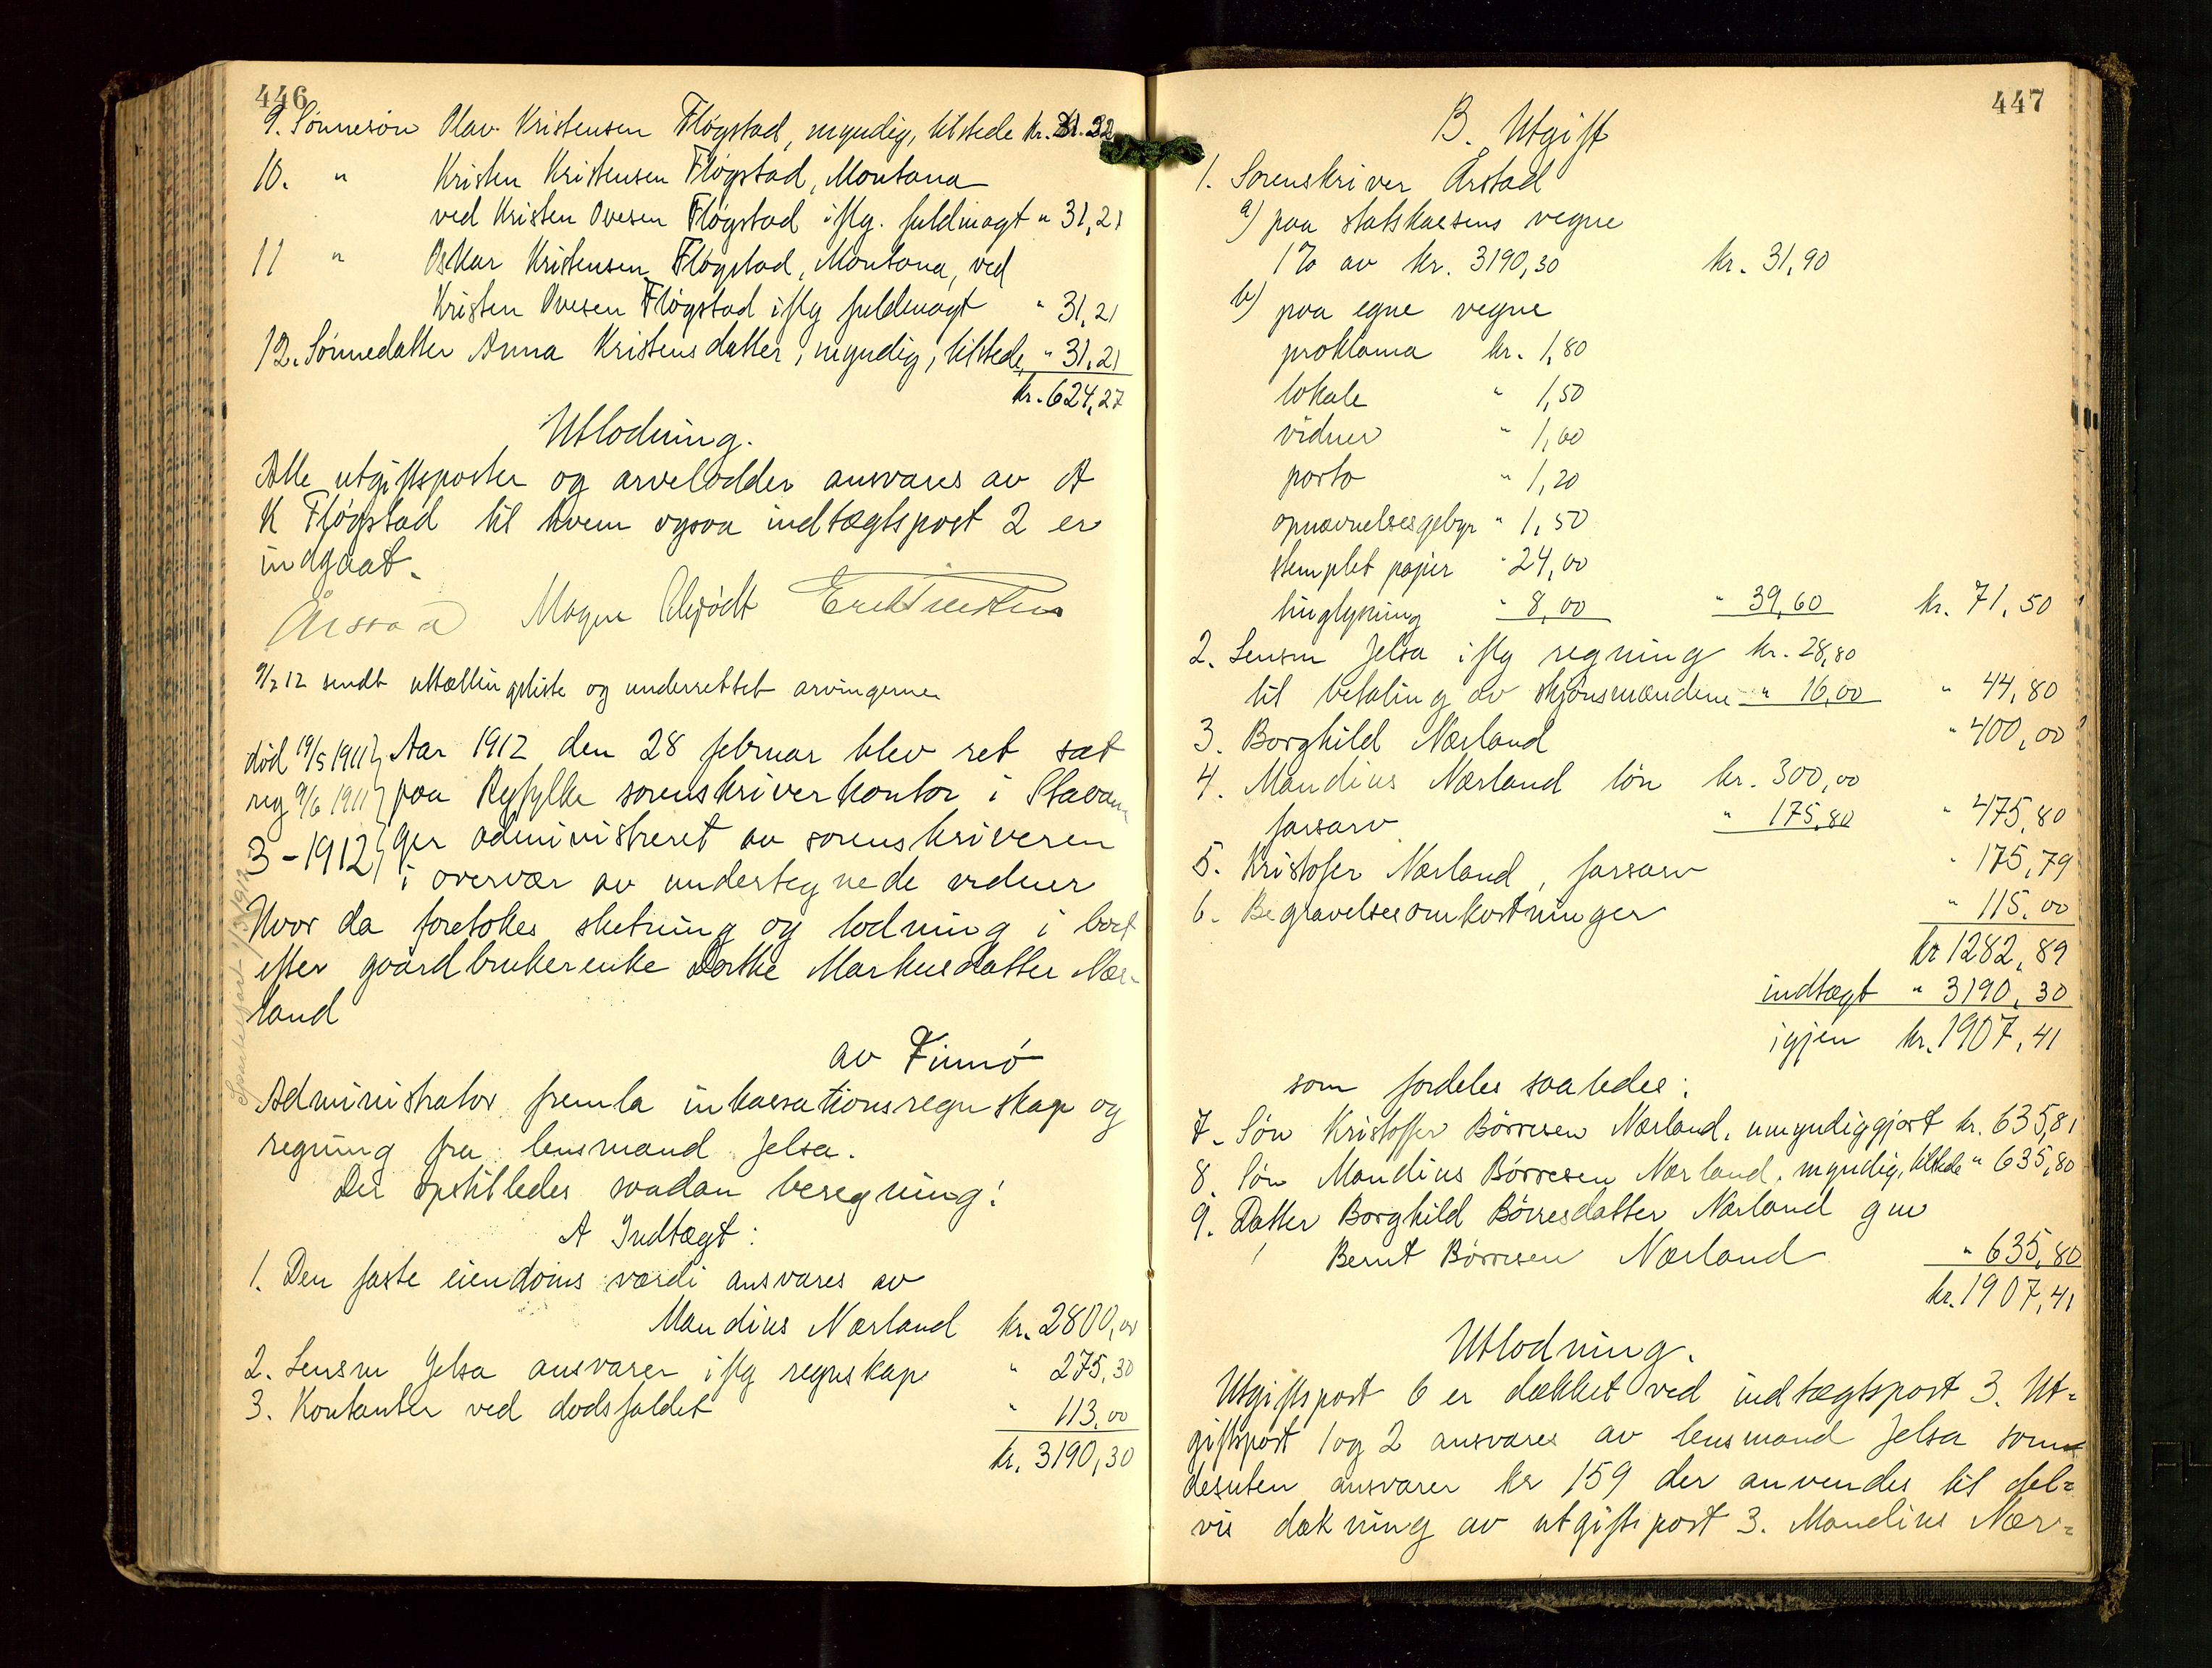 446
9. Sønnesøn Olav Kristensen Fløgstad, myndig, tilstede kr. 31.22
10. " Kristen Kristensen Fløgstad, Montana
ved Kristen Ovesen Fløgstad iflg. fuldmagt " 31,21
11 " Oskar Kristensen Fløgstad, Montana, ved
Kristen Ovesen Fløgstad iflg fuldmagt " 31,21
12. Sønnedatter Anna Kristensdatter, myndig, tilstede " 31,21
kr. 624,27
Utlodning.
Alle utgiftsposter og arvelodder ansvares av A
K Fløgstad til hvem ogsaa indtægtspost 2 er
indgaat.
Årstad Magne
9/2 12 sendt uttællingsliste og underrettet arvingerne
død 19/5 1911 Aar 1912 den 28 februar blev ret sat
reg 9/6 1911 paa Ryfylke sorenskriverkontor i Stavan
3-1912 ger administreret av sorenskriveren
i overvær av undertegnede vidner
Hvor da foretokes slutning og lodning i boet
efter gaardbrukerenke Dorthe Markusdatter Nær-
land
av Finnø
Administrator fremla inkassationsregnskap og
regning fra lensmand Jelsa.
Der opstilledes saadan beregning:
A Indtægt:
1. Den faste eiendoms værdi ansvares av
Mandius Nærland kr. 2800,00
2. Lensm Jelsa ansvarer iflg regnskap " 275,30
3. Kontanter ved dødsfaldet " 113,00
kr. 3190,30
447
B. Utgift
1. Sorenskriver Årstad
a) paa statskassens vegne
1% av kr. 3190,30 kr. 31,90
b) paa egne vegne
proklama kr. 1,80
lokale " 1,50
vidner " 1,60
porto " 1,20
opnævnelsesgebyr " 1,50
stemplet papir " 24,00
tinglysning " 8,00 " 39,60 kr. 71,50
2. Lensm Jelsa iflg regning kr. 28,80
til betaling av skjønsmændene " 16,00 " 44,80
3. Borghild Nærland " 400,00
4. Mandius Nærland løn kr. 300,00
farsarv " 175,80 " 475,80
5. Kristofer Nærland, farsarv " 175,79
6. Begravelsesomkostninger " 115.00
kr 1282,89
indtægt " 3190,30
igjen kr. 1907,41
som fordeles saaledes:
7. Søn Kristoffer Børresen Nærland, umyndiggjort kr. 635,81
8. Søn Mandius Børresen Nærland, myndig, tilstede " 635,80
9. Datter Borghild Børresdatter Nærland gm
Bernt Børresen Nærland " 635,80
kr. 1907,41
Utlodning.
Utgiftspost 6 er dækket ved indtægtspost 3. Ut=
giftspost 1 og 2 ansvares av lensmand Jelsa som
desuten ansvarer kr 159 der anvendes til del=
vis dækning av utgiftspost 3. Mandius Nær=